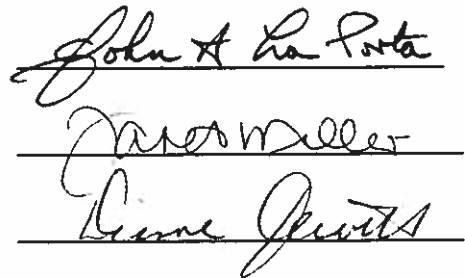 John A La Porta
Janet Miller
Diane Jewitt